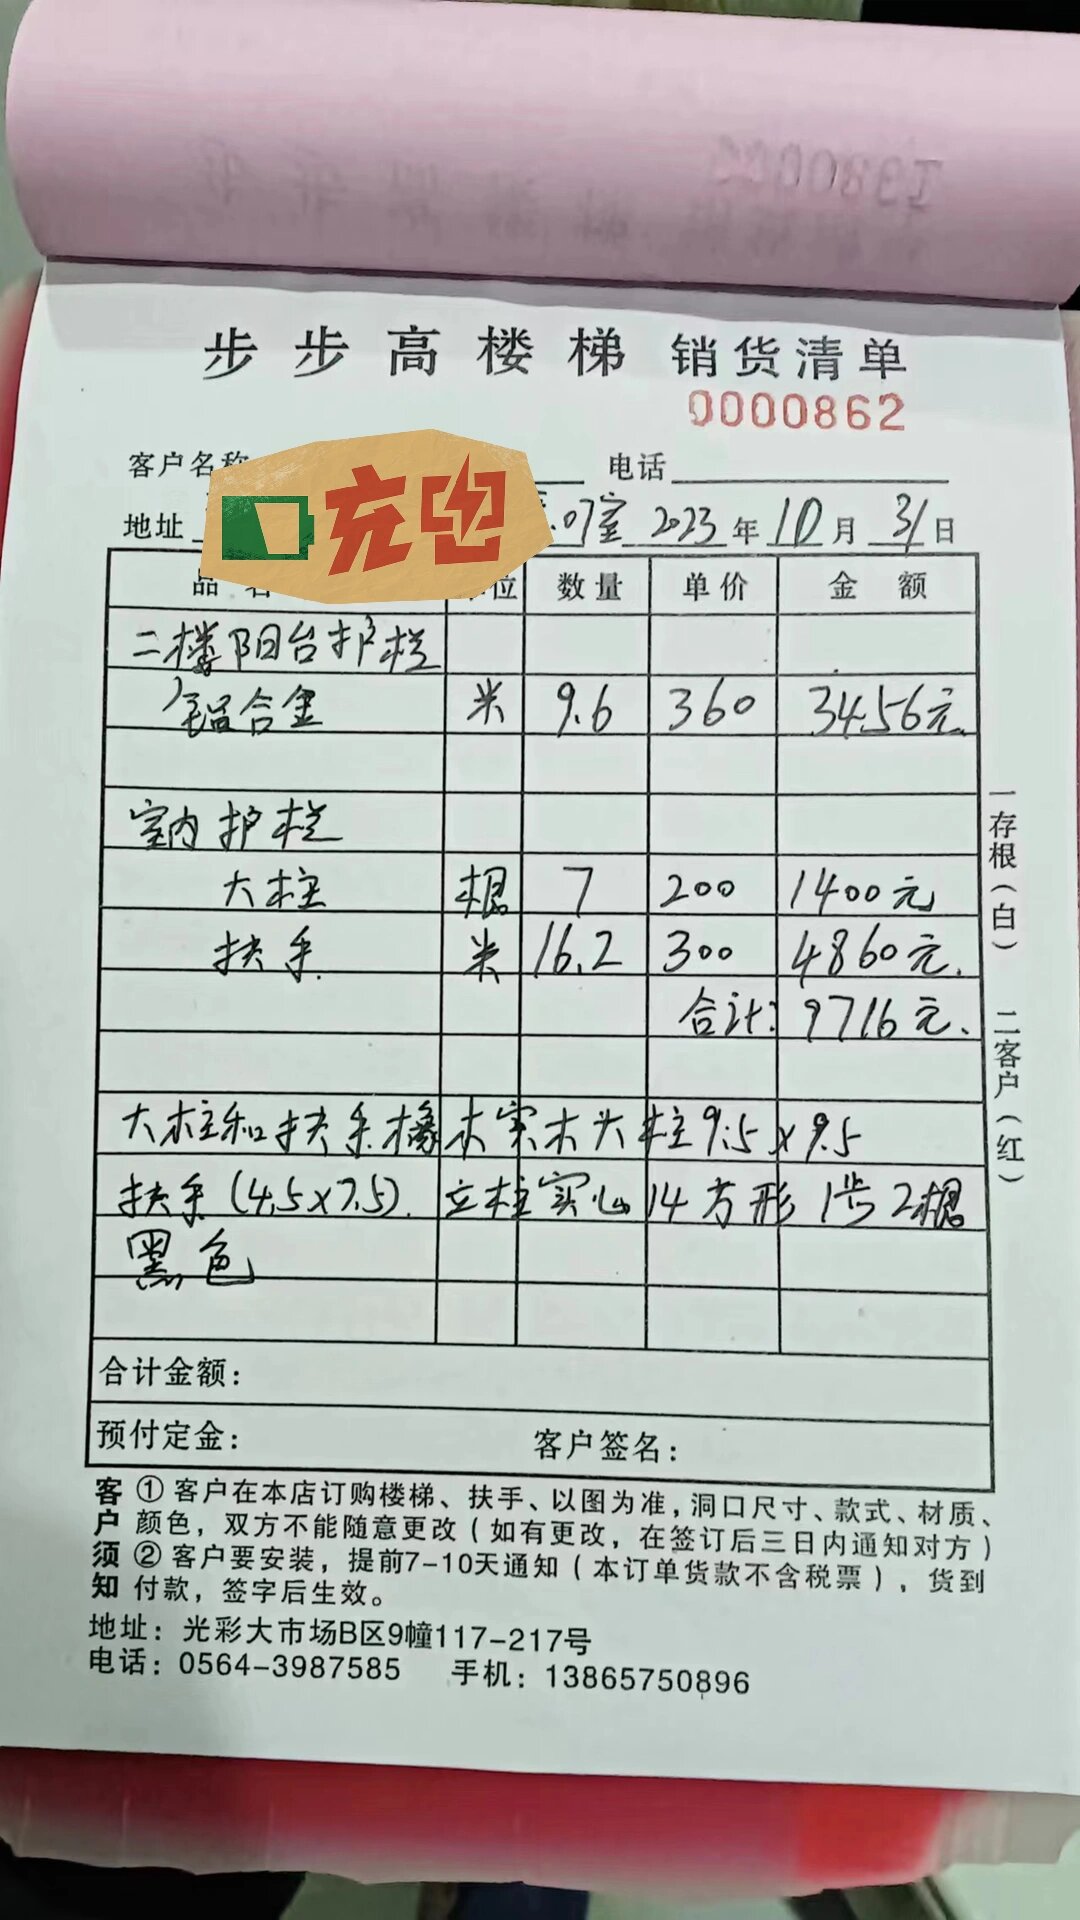 步步高楼梯 销货清单
0000862
客户名称 电话
地址 07室 2023年 10月 31日
品名 单位 数量 单价 金额
二楼阳台护栏
铝合金 米 9.6 360 3456元
室内护栏
大柱 根 7 200 1400元
扶手 米 16.2 300 4860元
合计: 9716元
大柱和扶手橡木实木大柱9.5×9.5
扶手(4.5×7.5) 立柱实心14方形1步2根
黑色
合计金额:
预付定金: 客户签名:
客户须知
①客户在本店订购楼梯、扶手、以图为准,洞口尺寸、款式、材质、
颜色,双方不能随意更改(如有更改,在签订后三日内通知对方)
②客户要安装,提前7-10天通知(本订单货款不含税票),货到
付款,签字后生效。
地址:光彩大市场B区9幢117-217号
电话:0564-3987585 手机:13865750896
一存根(白) 二客户(红)
充电